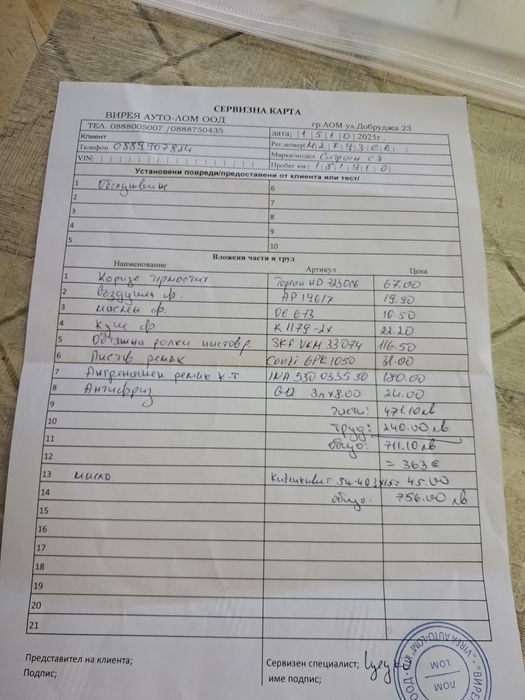 СЕРВИЗНА КАРТА
ВИРЕЯ АУТО-ЛОМ ООД гр.ЛОМ ул.Добруджа 23
ТЕЛ. 0888005007 /0888750435 дата; 15 10 2025г.
Клиент Рег номер
Телефон 0889907824 Марка/модел Ситроен C3
VIN Пробег км 181910
Установени повреди/предоставени от клиента или тест/
1 Обслужване 6
2 7
3 8
4 9
5 10
Вложени части и труд
Наименование Артикул Цена
1 Корпус термостат 67.00
2 Въздушен ф. AP 196/7 19.90
3 маслен ф. OE 673 10.50
4 Купе ф. K 1179-2x 22.20
5 SKF VKM 33074 116.50
6 Пистов ремък Conti 6PK1050 31.00
7 ремък к-т INA 530 0335 30 180.00
8 Антифриз G12 3л x 8.00 24.00
9 части: 471.10лв
10 труд: 240.00 лв
11 общо: 711.10лв
12 = 363 €
13 масло 5w-40 3x15= 45.00
14 общо: 756.00 лв
15
16
17
18
19
20
21
Представител на клиента; Сервизен специалист;
Подпис; име подпис;
"ВИРЕЯ
VIREA AUTO-LOM
ООД
ЛОМ
LOM